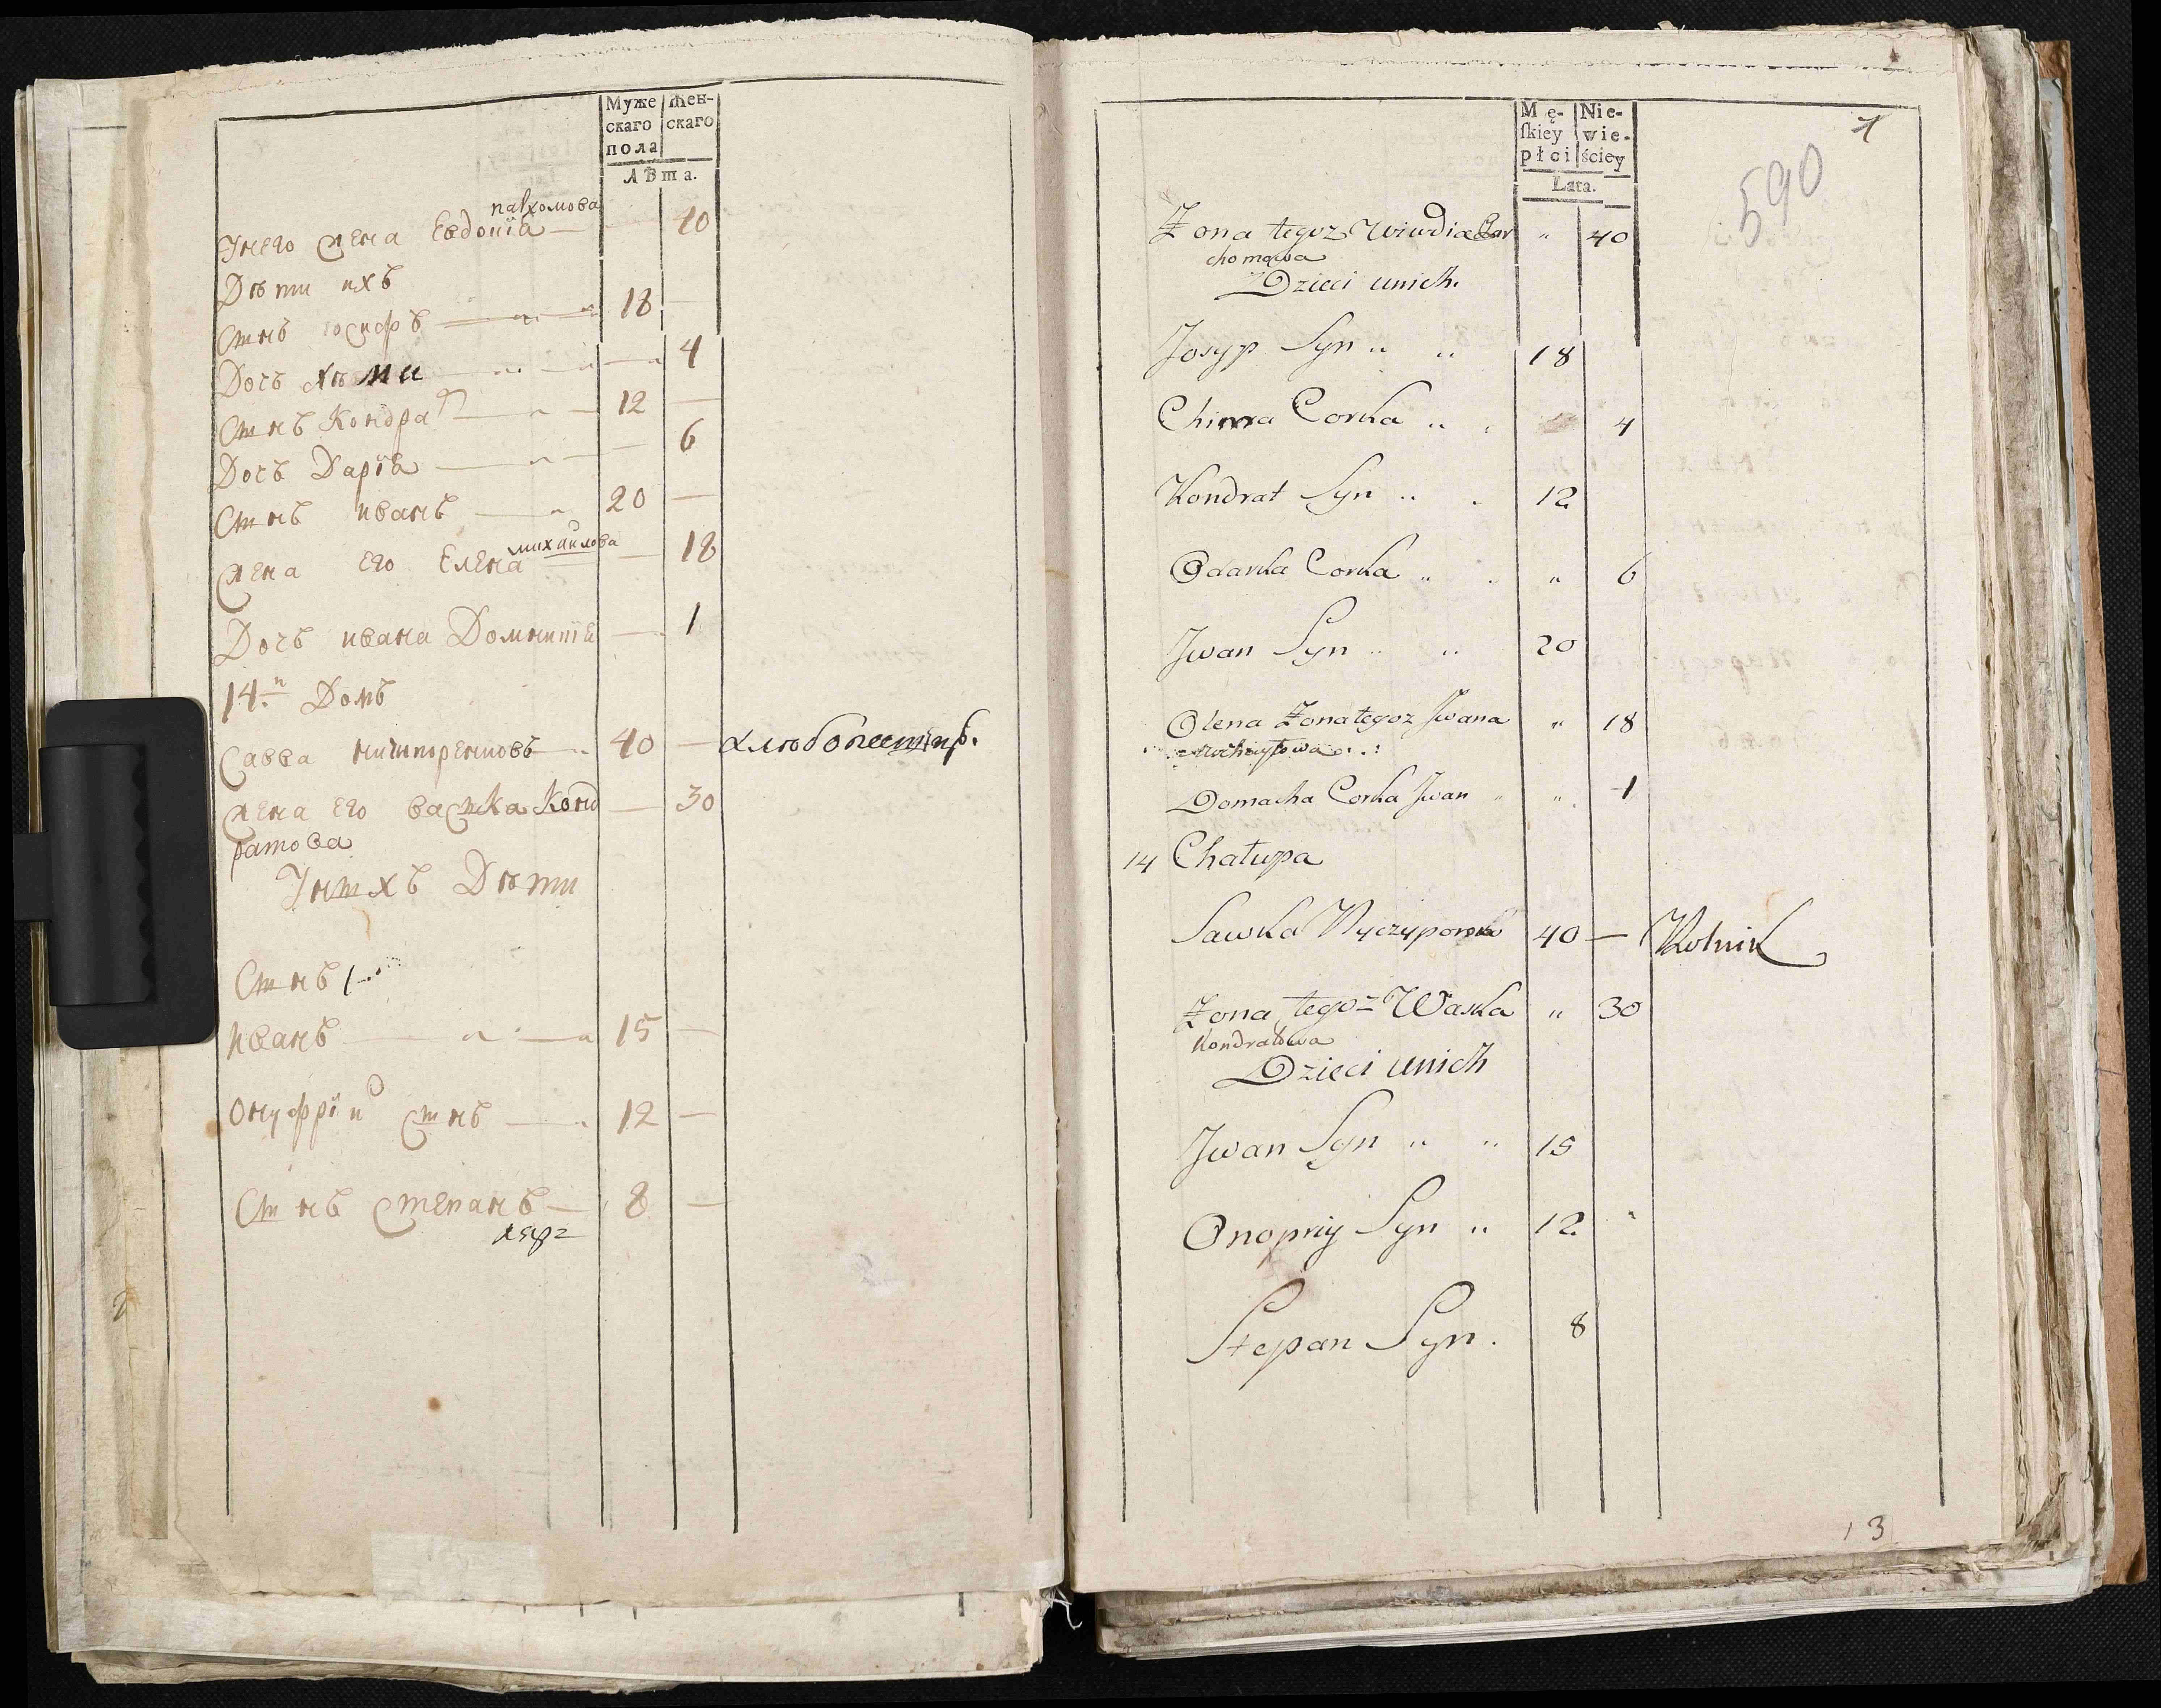 Муже скаго пола
жен- скаго
лѣта.
пахомова
Унего жена Евдокiя 40
Дѣти ихъ
Сынъ Iосифъ 18
Дочъ Хими 4
Сынъ Кондрат 12
Дочъ Дарiя 6
Сынъ иванъ 20
михаилова
жена его Елена 18
Дочъ ивана Домникiя 1
14.й Домъ
Савва ничипоренковъ 40 —
жена его васька Конд 30
ратова
Унихъ Дѣти
Сынъ
иванъ 15 —
Онуфрiй сынъ 12 —
Сынъ степанъ 8 —
Mę- skiey płci
Nie- wie- ściey
Lata.
1
590
Zona tegoz Wiwdia Par " 40
chomowa
Dzieci unich.
Josyp Syn " " 18
Chima Corka " 4
Kondrat Syn " 12
Odarka Corka " " 6
Jwan Syn " " 20
Olena Zona tegoz Jwana " 18
Domacha Corka Jwan " " 1
14 Chałupa
Sawka Nyczyporenko 40 — Rolnik
Zona tegoz Waska " 30
Kondratowa
Dzieci unich
Jwan Syn " " 15
Onopriy Syn " 12 "
Stepan Syn. 8
13